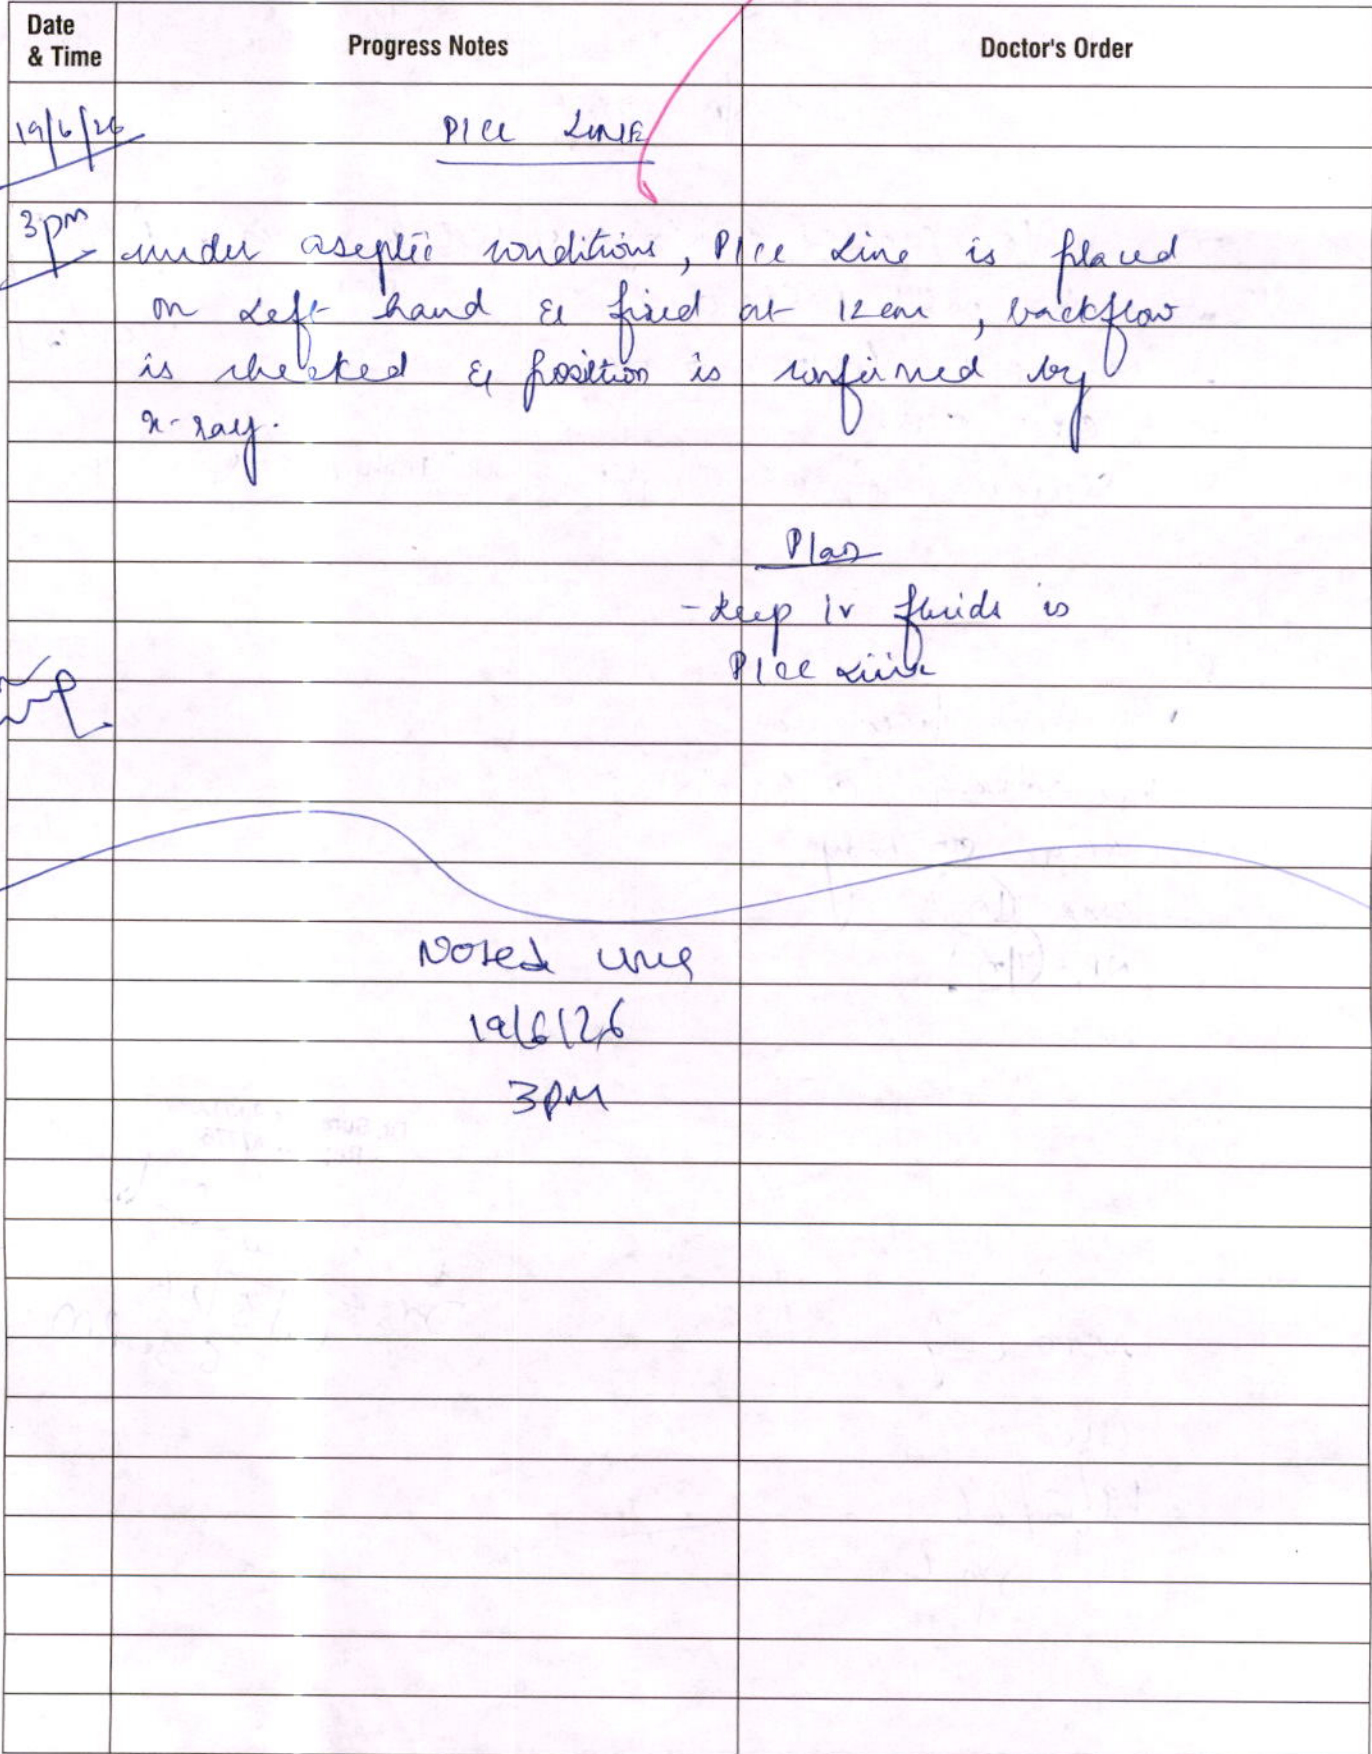 Date & Time
Progress Notes
Doctor's Order
19/6/26
PICC LINE
3pm
under aseptic conditions, PICC Line is placed
on Left hand & fixed at 12cm, backflow
is checked & position is confirmed by
x-ray.
Plan
- keep IV fluids
PICC Line
Noted
19/6/26
3PM